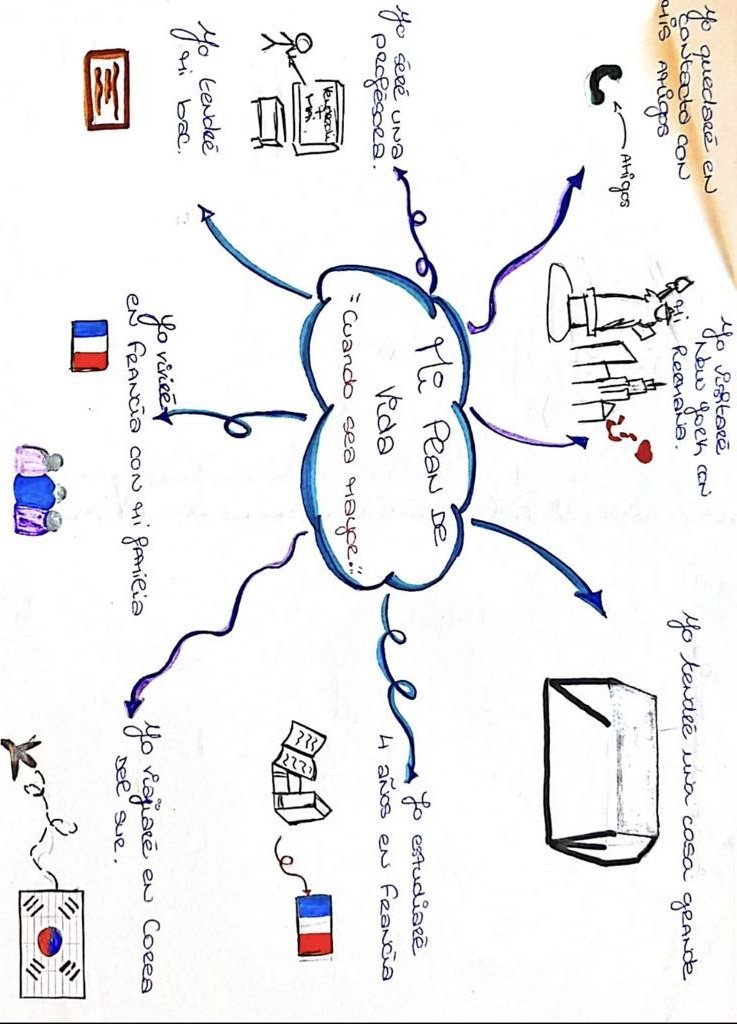 Yo quedaré en
contacto con
mis amigos
Amigos
Yo visitaré
New York con
mi hermana.
Yo tendré una casa grande
Mi Plan de
Vida
"Cuando sea mayor."
Yo seré una
profesora.
Yo estudiaré
4 años en Francia
Yo tendré
mi bac.
Yo viviré
en Francia con mi familia
Yo viajaré en Corea
del sur.